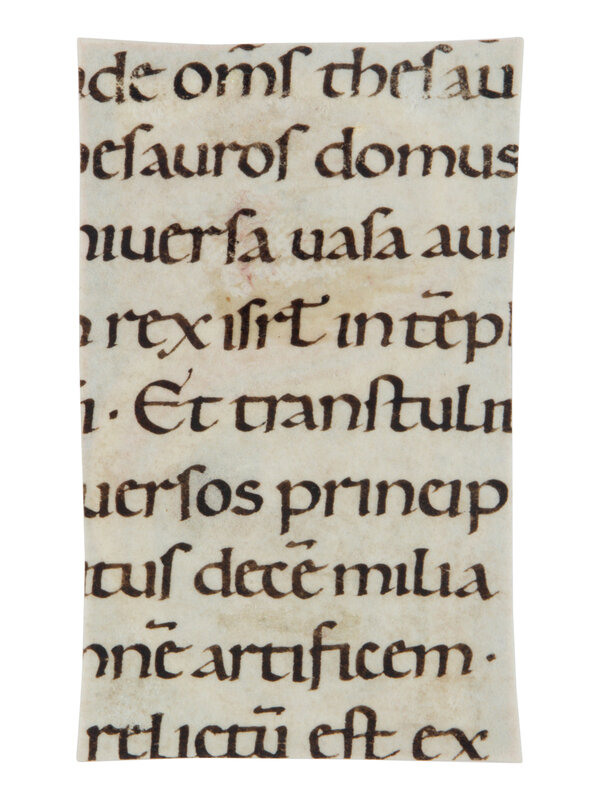 nde om̄s thesau
hesauros domus
niversa vasa aur
n rex isrt̄ in tēpl
ni · Et transtulit
uersos princip
rtus decē milia
nnē artificem ·
relictū est ex